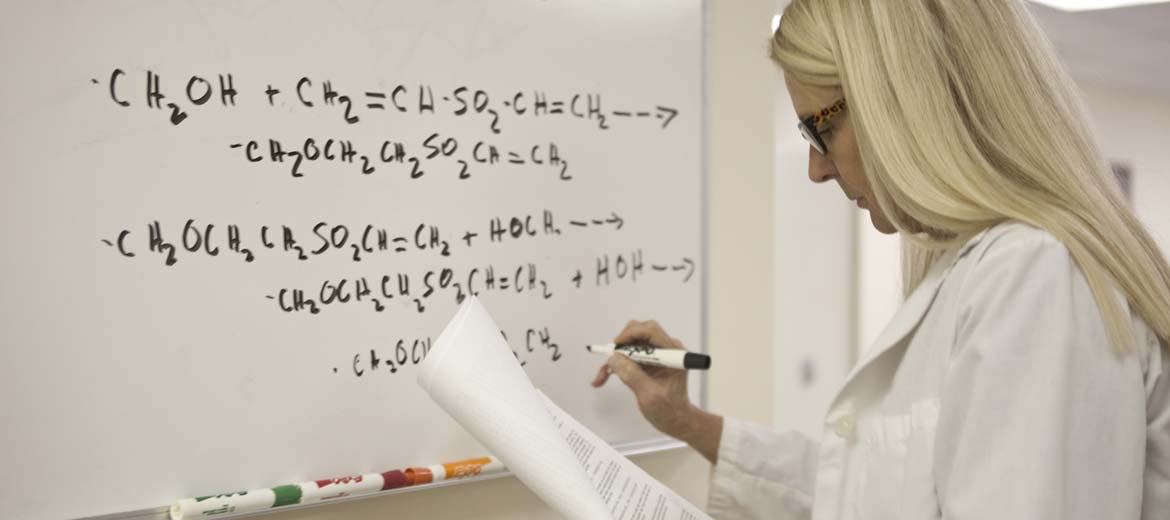 ·CH₂OH + CH₂=CH·SO₂·CH=CH₂--->
-CH₂OCH₂CH₂SO₂CH=CH₂
-CH₂OCH₂CH₂SO₂CH=CH₂ + HOCH. --->
-CH₂OCH₂CH₂SO₂CH=CH₂ + HOH--->
·CH₂OCH CH₂
EXPO